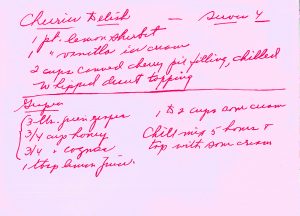 Cherries Delish — Serves 4
1 pt. lemon sherbet
1 " vanilla ice cream
2 cups canned cherry pie filling, chilled
Whipped desert topping
Grapes
3 lbs. green grapes
3/4 cup honey
3/4 " cognac
1 tbsp lemon juice
1 to 2 cups sour cream
Chill mix 5 hours &
top with sour cream